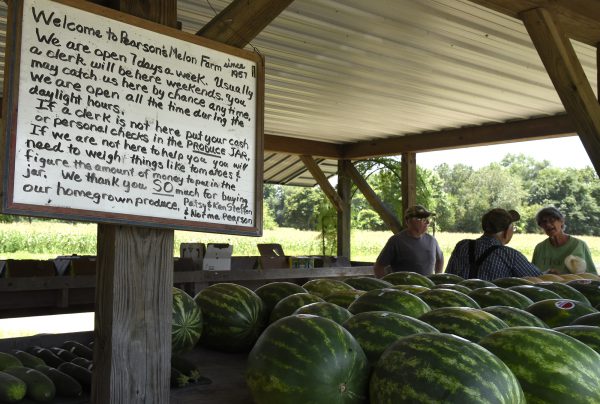 Welcome to Pearson's Melon Farm since 1957
We are open 7 days a week. Usually
a clerk will be here weekends. You
may catch us here by chance any time.
We are open all the time during the
daylight hours.
If a clerk is not here put your cash
or personal checks in the PRODUCE JAR.
If we are not here to help you, you will
need to weigh things like tomatoes &
figure the amount of money to put in the
jar. We thank you SO much for buying
our homegrown produce. Patsy & Ken
& Norma Pearson